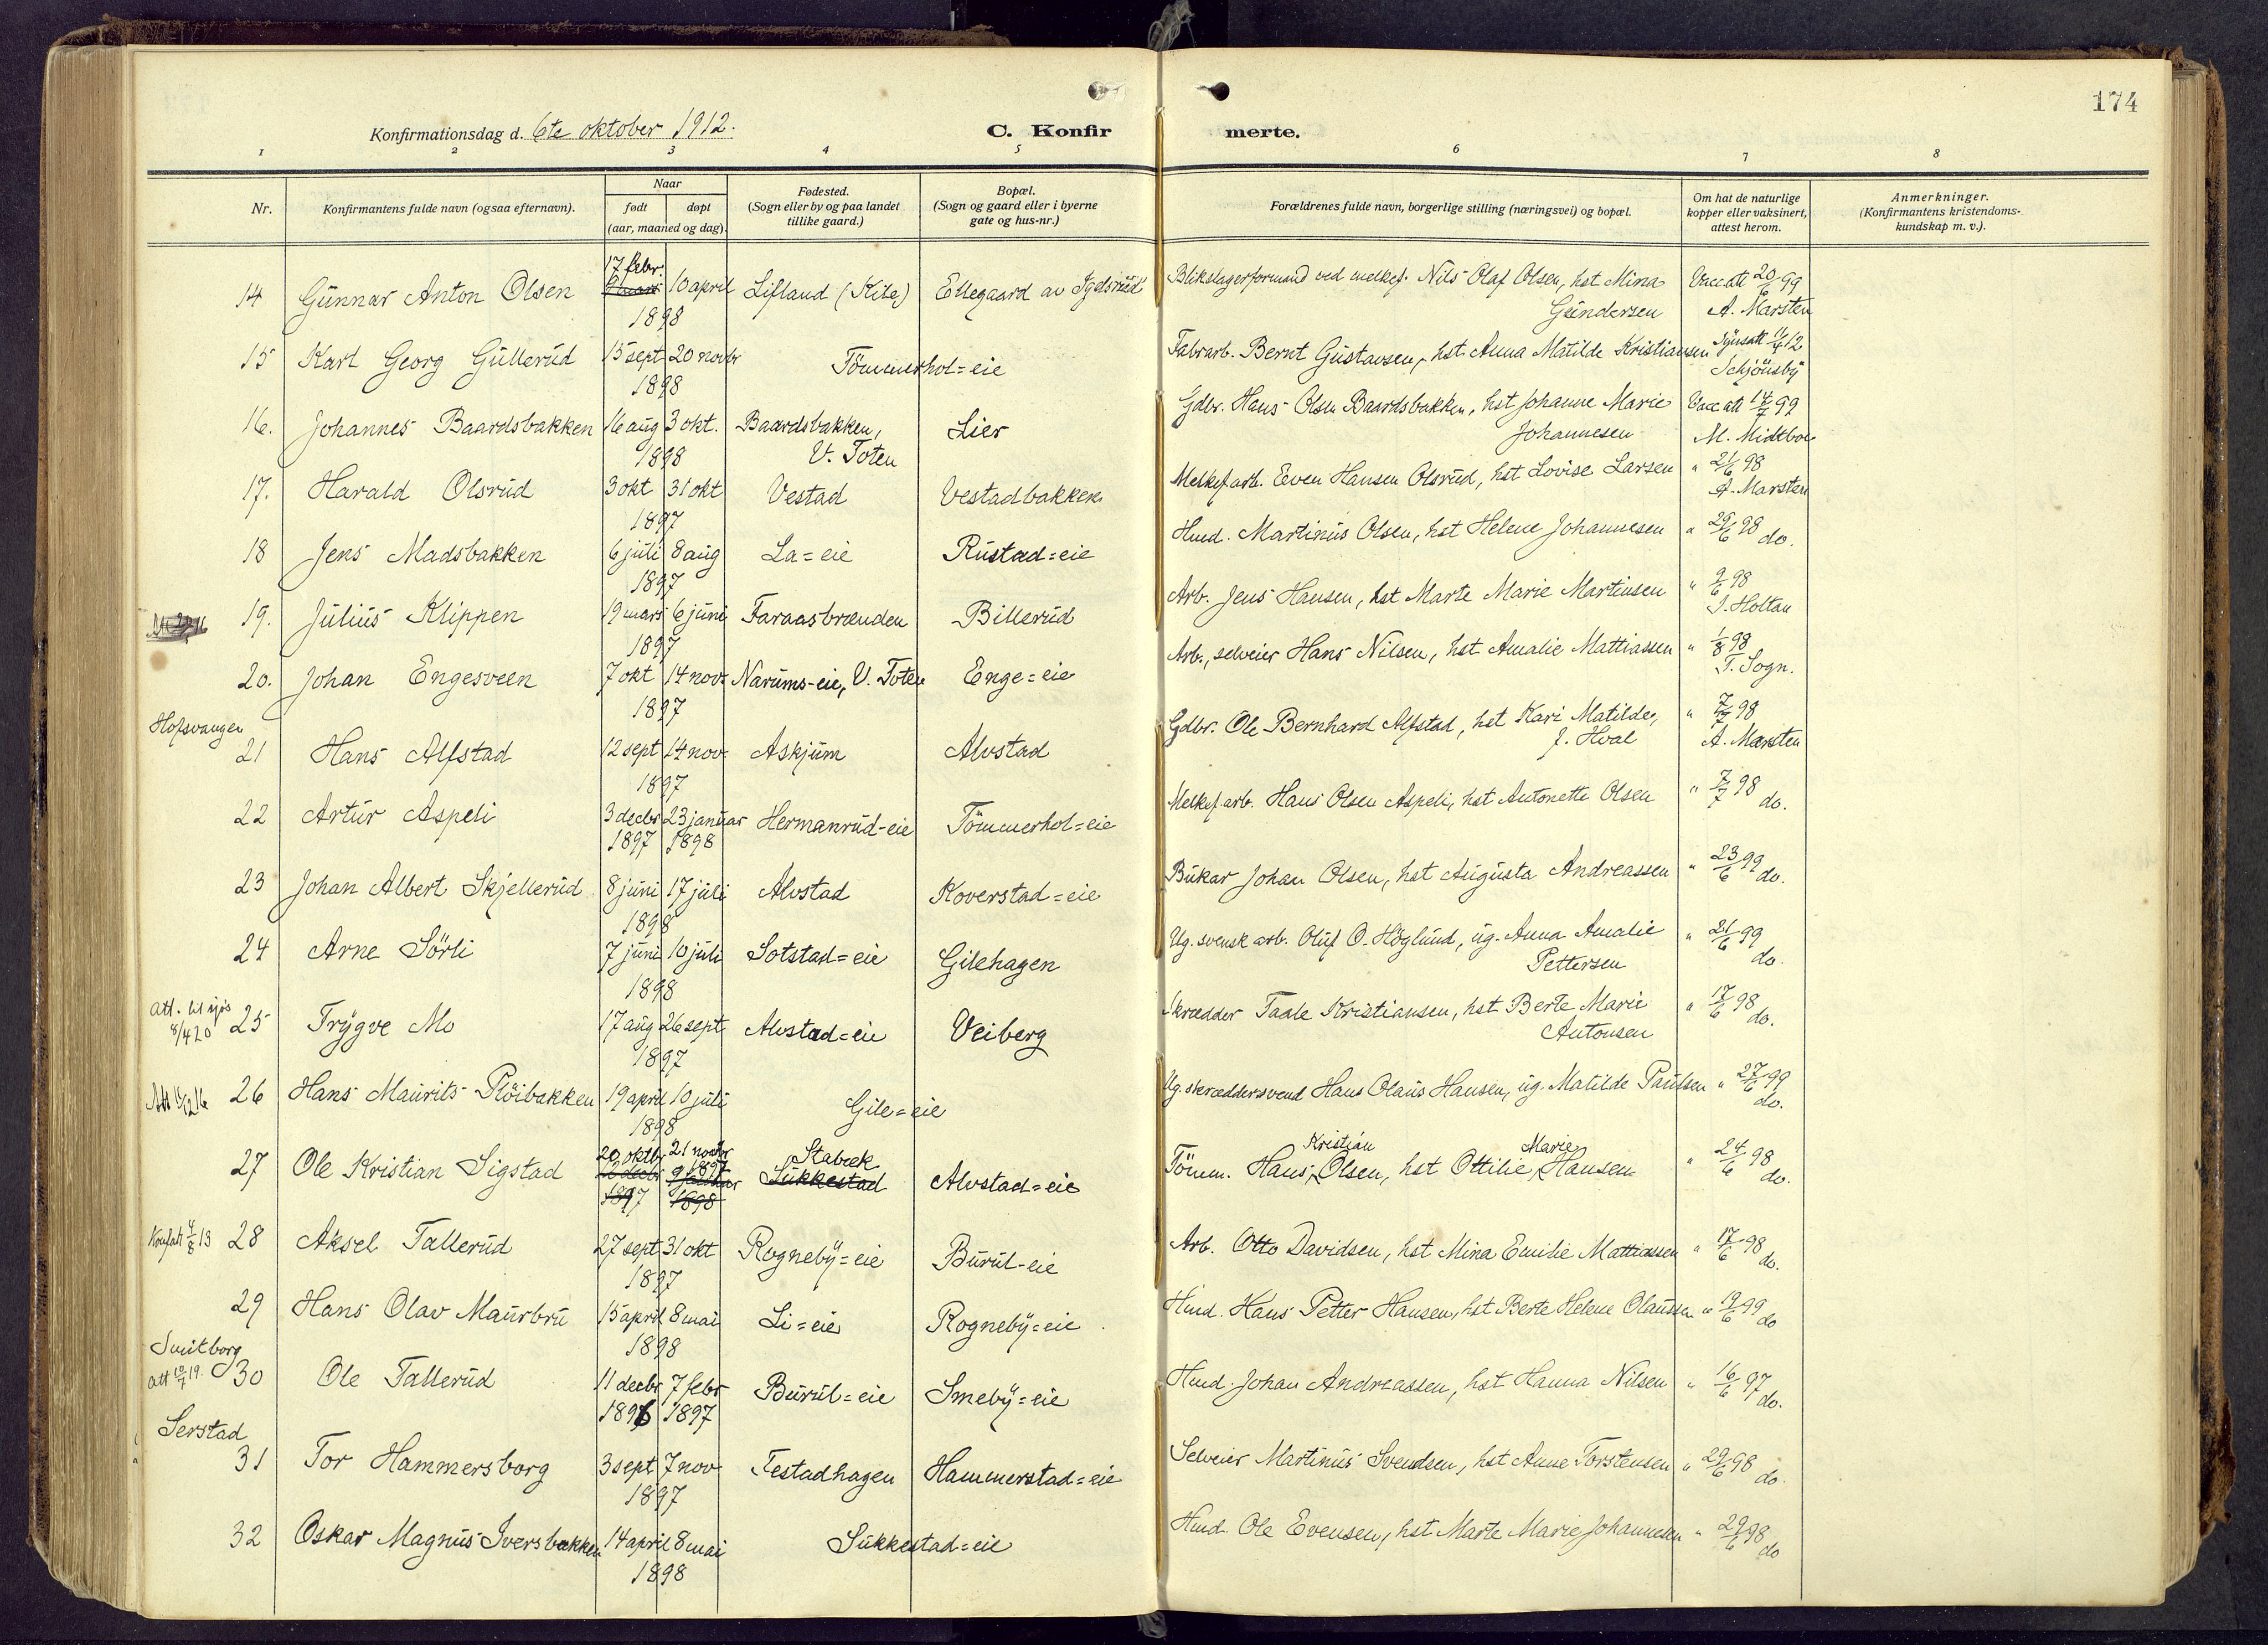 174
Konfirmationsdag d. 6te oktober 1912.
C. Konfirmerte.
1 2 3 4 5 6 7 8
Nr.
Konfirmantens fulde navn (ogsaa efternavn).
Naar
født døpt
(aar, maaned og dag).
Fødested.
(Sogn eller by og paa landet
tillike gaard.)
Bopæl.
(Sogn og gaard eller i byerne
gate og hus-nr.)
Forældrenes fulde navn, borgerlige stilling (næringsvei) og bopæl.
Om hat de naturlige
kopper eller vaksinert,
attest herom.
Anmerkninger.
(Konfirmantens kristendoms-
kundskap m. v.).
17 febr.
14 Gunnar Anton Olsen 10 april Lifland (Kile) Ellegaard av Igelsrud Blikslagerformand ved melkef. Nils Olaf Olsen, hst Mina Vacc att 20/6 99
1898 Gundersen A. Marsten
15 Karl Georg Gullerud 15 sept 20 novbr Tömmerhol=eie Fabrarb. Bernt Gustavsen, hst. Anna Matilde Kristiansen
1898 Schjönsby
16. Johannes Baardsbakken 16 aug 3 okt. Baardsbakken, Lier Gdbr. Hans Olsen Baardsbakken, hst Johanne Marie Vacc att 14/7 99
1898 V. Toten Johannesen M. Midtboe
17. Harald Olsrud 3 okt 31 okt Vestad Vestadbakken Melkef.arb. Even Hansen Olsrud, hst Lovise Larsen " 21/6 98
1897 A. Marsten
18 Jens Madsbakken 6 juli 8 aug La=eie Rustad=eie Hmd. Martinus Olsen, hst Helene Johannesen " 29/6 98 do.
1897
19. Julius Klippen 19 mars 6 juni Faraasbrænden Billerud Arb. Jens Hansen, hst Marte Marie Martinsen " 9/6 98
1897 J. Holtan
20. Johan Engesveen 7 okt 14 novr Narums-eie, V. Toten Enge=eie Arb., selveier Hans Nilsen, hst Amalie Mattiassen " 1/8 98
1897 T. Sogn.
Hofsvangen
21 Hans Alfstad 12 sept 14 nov. Askjum Alvstad Gdbr. Ole Bernhard Alfstad, hst Kari Matilde, " 7/7 98
1897 f. Hval A. Marsten
22 Artur Aspeli 3 decbr 23 januar Hermanrud-eie Tömmerhol=eie Melkef.arb. Hans Olsen Aspeli, hst Antonette Olsen " 7/7 98 do.
1897 1898
23 Johan Albert Skjellerud 8 juni 17 juli Alvstad Koverstad=eie Bukar Johan Olsen, hst Augusta Andreassen " 23/6 99 do.
1898
24 Arne Sörli 7 juni 10 juli Sotstad=eie Gilehagen Ug. svensk arb. Oluf O. Höglund, ug. Anna Amalie " 21/6 99
1898 Pettersen do.
Att. til sjøs
8/4 20 25 Trygve Mo 17 aug 26 sept. Alvstad=eie Veiberg Skrædder Taale Kristiansen, hst Berte Marie " 17/6 98 do.
1897 Antonsen
26 Hans Maurits Plöibakken 19 april 10 juli Gile=eie Ug. skræddersvend Hans Olaus Hansen, ug. Matilde Paulsen " 27/6 99
1898 do.
20 oktbr 21 novbr Stabæk Kristian Marie
27 Ole Kristian Sigstad 1897 Sukkestad Alvstad=eie Tömm. Hans Olsen, hst Ottilie Hansen " 24/6 98 do.
1897 1898
Konfatt 4/8 13 28 Aksel Tallerud 27 sept 31 okt Rogneby=eie Burul-eie Arb. Otto Davidsen, hst Mina Emilie Mattiassen " 17/6 98 do.
1897
29 Hans Olav Maurbru 15 april 8 mai Li=eie Rogneby=eie Hmd. Hans Petter Hansen, hst Berte Helene Olaussen " 19/6 99 do
1898
Smitborg
30 Ole Tallerud 11 decbr 7 febr Burul=eie Smeby=eie Hmd. Johan Andreassen, hst Hanna Nilsen " 16/6 97 do.
1896 1897
Serstad
31 Tor Hammersborg 3 sept 7 nov Festadhagen Hammerstad=eie Selveier Martinus Svendsen, hst Anne Torstensen " 29/6 98 do.
1897
32 Oskar Magnus Iversbakken 14 april 8 mai Sukkestad=eie Hmd. Ole Evensen, hst Marte Marie Johannesen " 29/6 98 do
1898